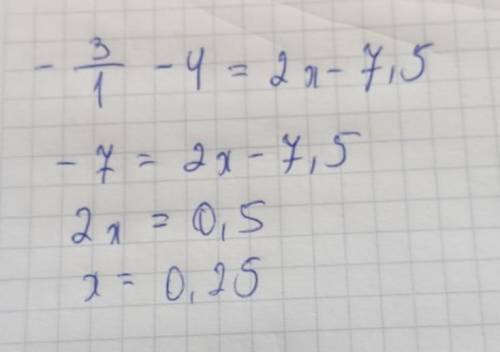 - 3/1 - 4 = 2x - 7,5
- 7 = 2x - 7,5
2x = 0,5
x = 0,25